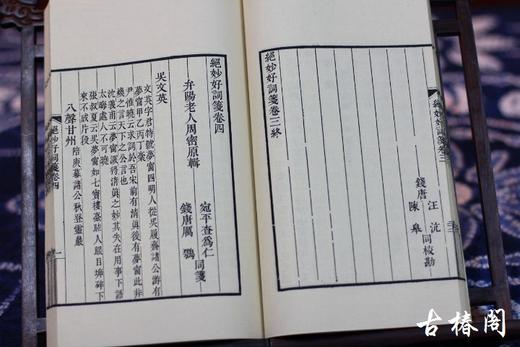 絕妙好詞箋卷三終
錢唐
汪沆
陳皐
同校勘
絕妙好詞箋卷三
絕妙好詞箋卷四
弁陽老人周密原輯
宛平查爲仁
錢唐厲鶚
同箋
吳文英
文英字君特號夢窗四明人從吳履齋諸公游有
夢窗甲乙丙丁藁
尹惟曉云求詞於吾宋前有清眞後有夢窗此非
煥之言天下之公言也
沈義甫云夢窗深得清眞之妙其失在用事下語
太晦處人不可曉
張叔夏云吳夢窗如七寶樓臺眩人眼目坼碎下
來不成片段
八聲甘州
陪庾幕諸公秋登靈巖
絕妙好詞箋卷四
一
古椿阁